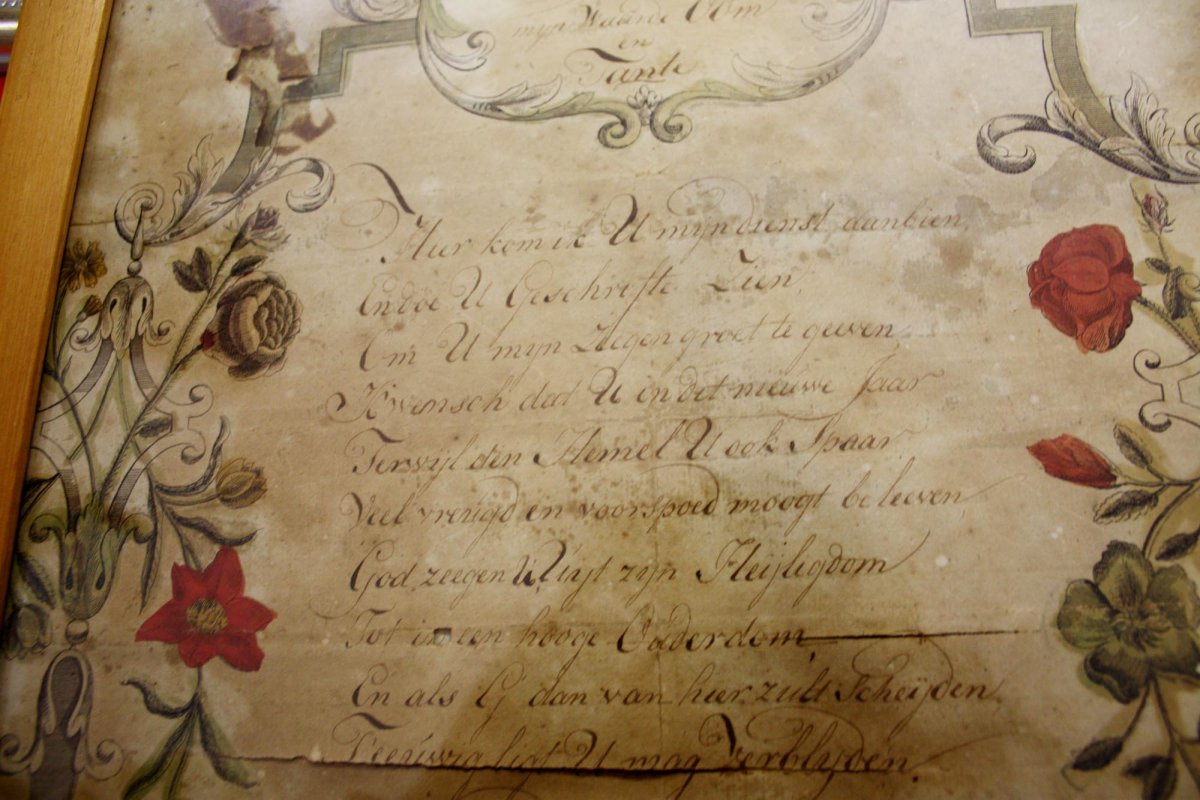 mijn Waarde Oom
en
Tante
Hier kom ik U myn dienst aanbien,
En doe U Geschrifte Zien,
Om U myn Zeegen groet te geeven,
K'wensch dat U in dit nieuwe Jaar
Terwijl den Hemel U ook Spaar,
Veel vreugd en voorspoed moogt beleeven,
God zeegen U, uijt zyn Heijligdom
Tot in een hooge Ouderdom,
En als Gy dan van hier zult Scheijden,
T'eeuwig ligt U mag Verblyden.